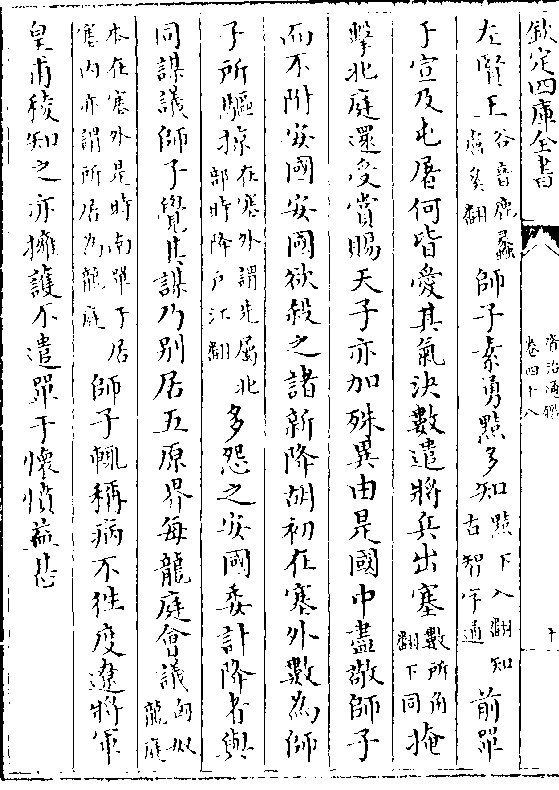 欽定四庫全書
資治通鑑
卷四十八
十
左賢王谷音鹿蠡盧奚翻師子素勇黠多知黠下八翻知古智字通前單
于宣及屯屠何皆愛其氣決數遣將兵出塞數所角翻下同掩
擊北庭還受賞賜天子亦加殊異由是國中盡敬師子
而不附安國安國欲殺之諸新降胡初在塞外數為師
子所驅掠在塞外謂先屬北部時降戶江翻多怨之安國委計降者與
同謀議師子覺其謀乃别居五原界每龍庭會議匈奴龍庭
本在塞外是時南單于居塞内亦謂所居為龍庭師子輒稱病不往度遼將軍
皇甫稜知之亦擁護不遣單于懷憤益甚